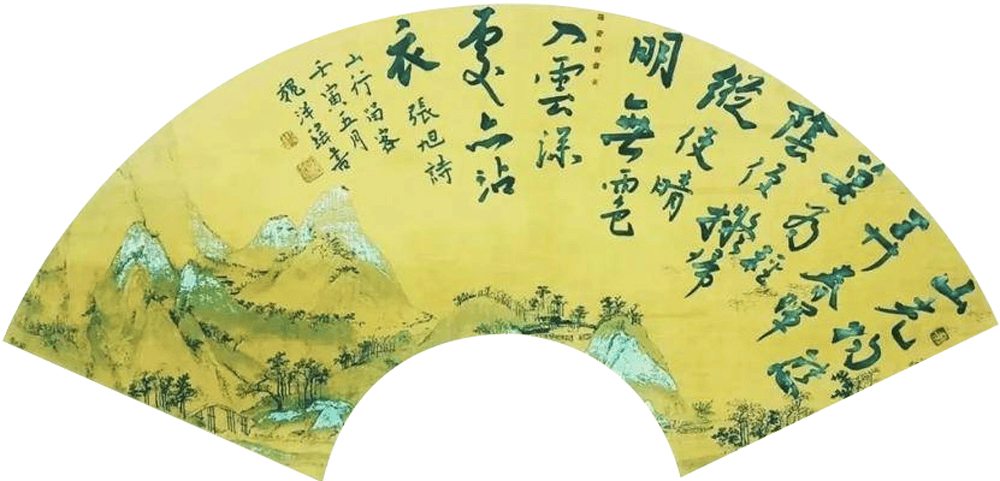 山光物態
弄春暉
莫為輕
陰便擬歸
縱使晴
明無雨色
入雲深
處亦沾
衣
張旭詩
山行留客
壬寅五月
魏洋瑶書